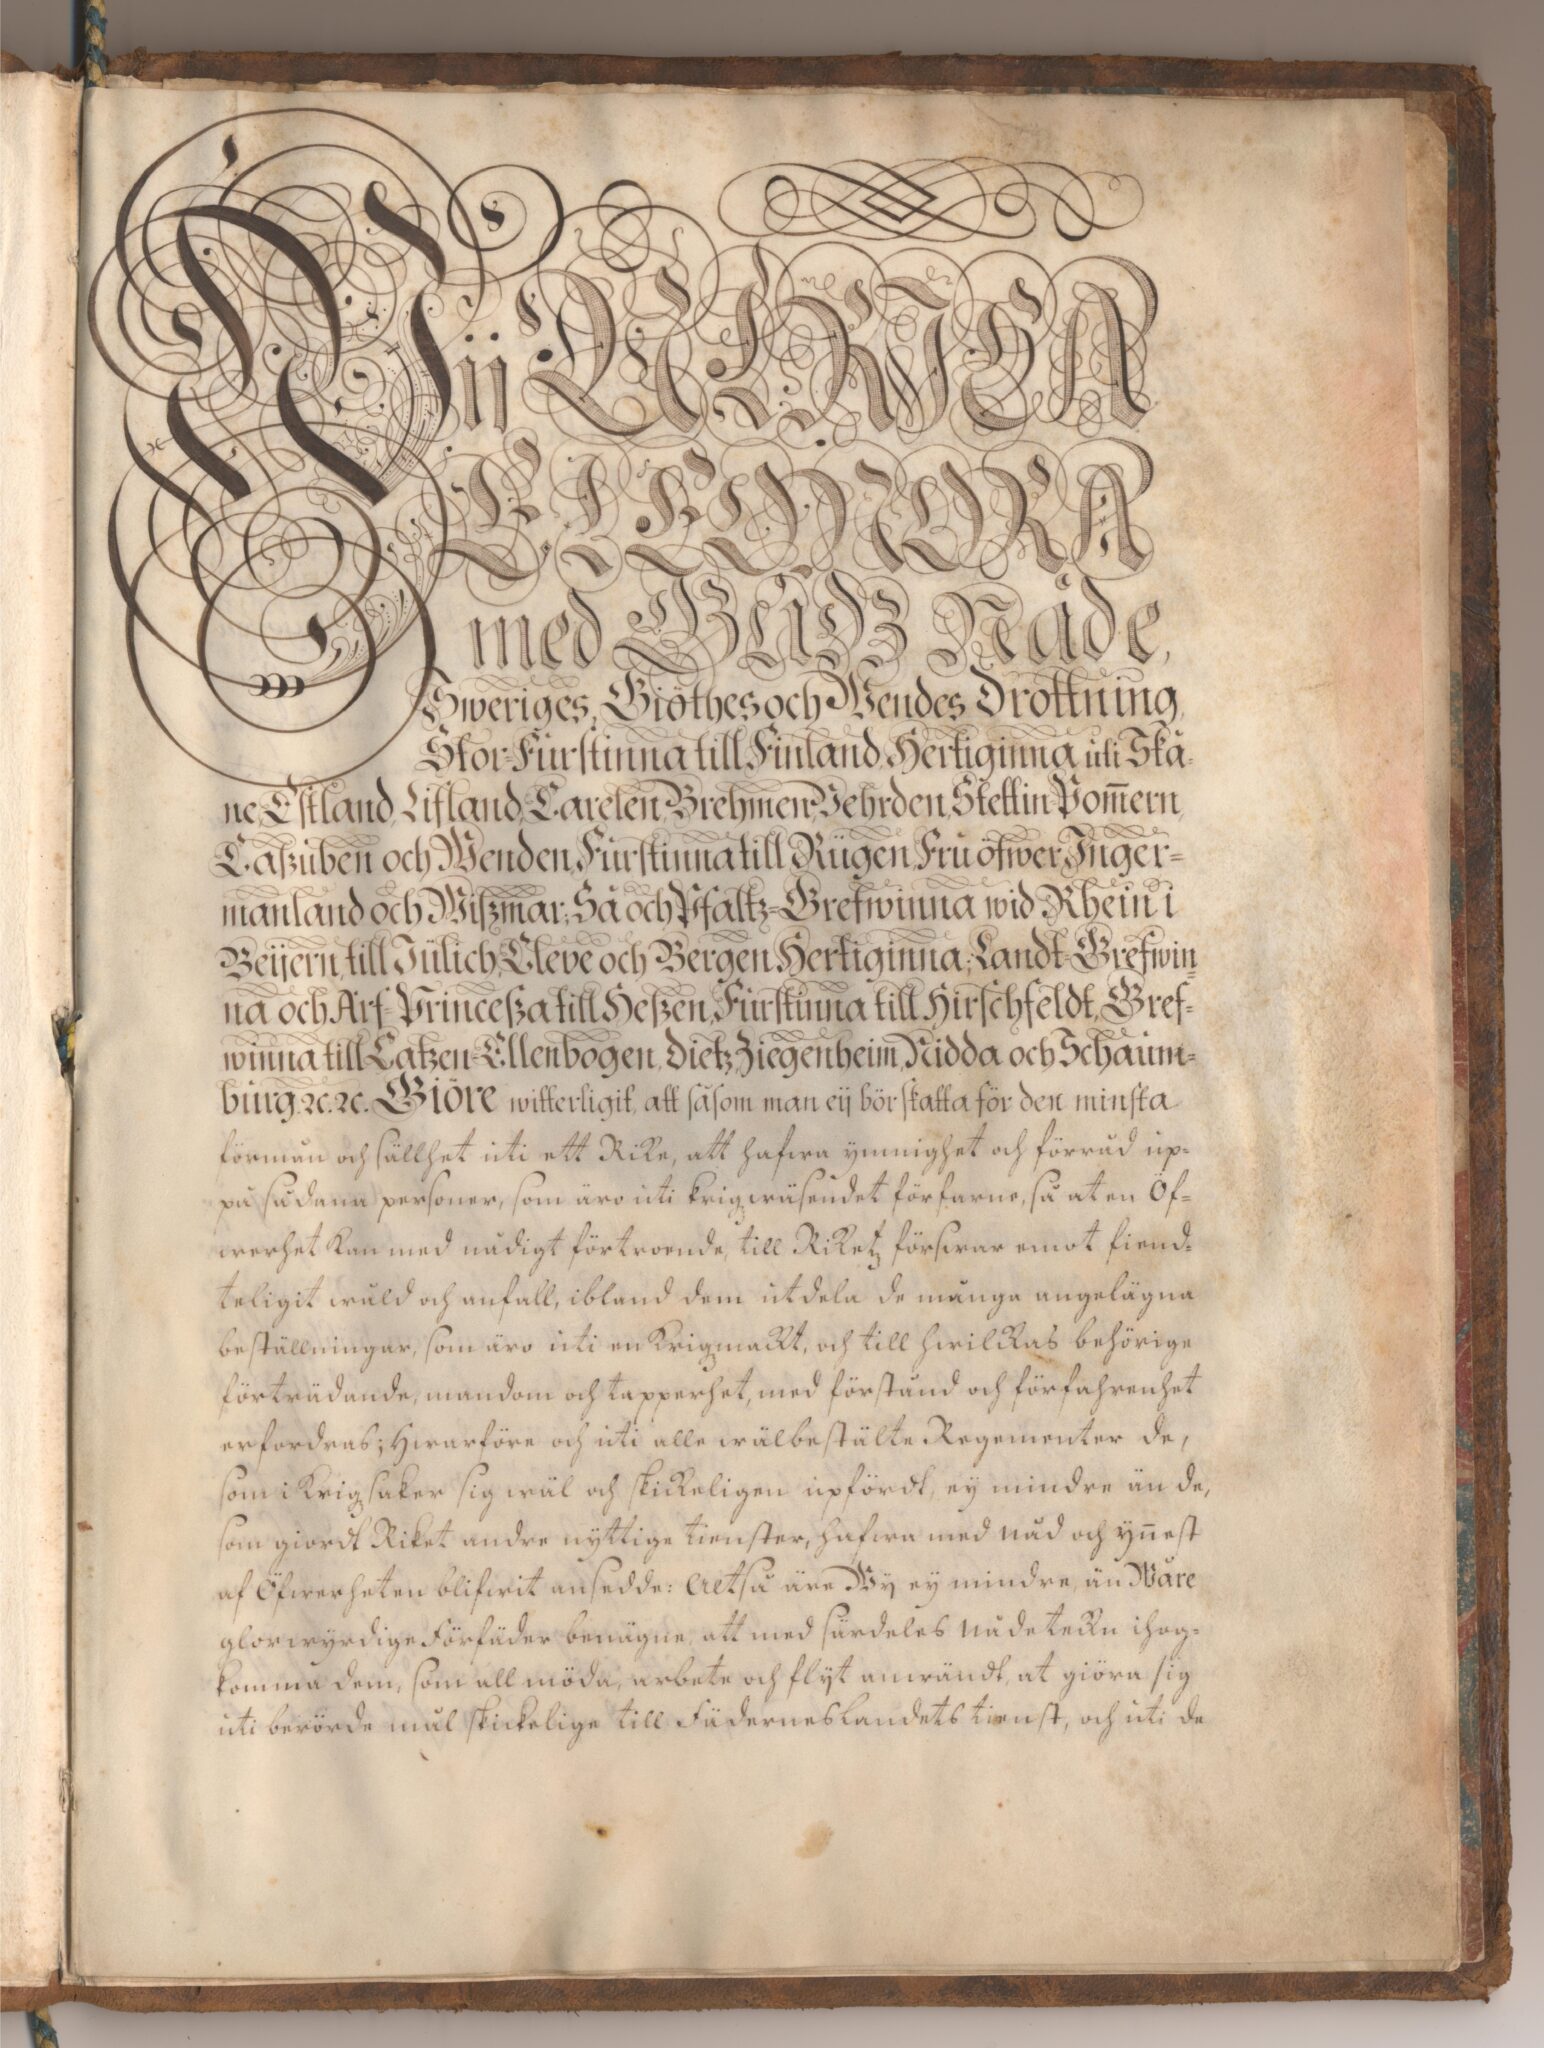 Wii ULRICA
ELEONORA
med GUDZ Nåde,
Sweriges, Giöthes och Wendes Drottning,
Stor-Furstinna till Finland, Hertiginna uti Skå-
ne, Estland, Lifland, Carelen, Brehmen, Vehrden, Stettin Pom̅ern,
Caszuben och Wenden, Furstinna till Rügen, Fru öfwer Inger-
manland och Wiszmar; Så och Pfaltz-Grefwinna wid Rhein i
Beijern, till Jülich, Cleve och Bergen Hertiginna; Landt-Grefwin-
na och Arf-Princeszа till Heszen, Furstinna till Hirschfeldt, Gref-
winna till Catzen-Ellenbogen, Dietz, Ziegenheim, Nidda och Schaum-
burg. ꝛc. ꝛc. Giöre witterligit, att såsom man eij bör skatta för den minsta
förmån och sällhet uti ett Rike, att hafwa ymnighet och förråd up-
på sådana personer, som äro uti krigzwäsendet förfarne, så at en Öf-
werhet kan med nådigt förtroende, till Riketz förswar emot fiend-
teligit wåld och anfall, ibland dem utdela de många angelägna
beställningar, som äro uti en Krigzmackt, och till hwilckas behörige
förträdande, mandom och tapperhet, med förstånd och förfahrenhet
erfordras; Hwarföre och uti alle wälbestälte Regementer de,
som i Krigzsaker sig wäl och skickeligen upfördt, ey mindre än de,
som giordt Riket andre nyttige tienster, hafwa med nåd och yn̅est
af Öfwerheten blifwit ansedde: Altså äre Wy ey mindre, än Wåre
glorwyrdige Förfäder benägne, att med särdeles nådeteckn ihog-
komma dem, som all möda, arbete och flyt anwändt, at giöra sig
uti berörde mål skickelige till Fäderneslandets tienst, och uti de